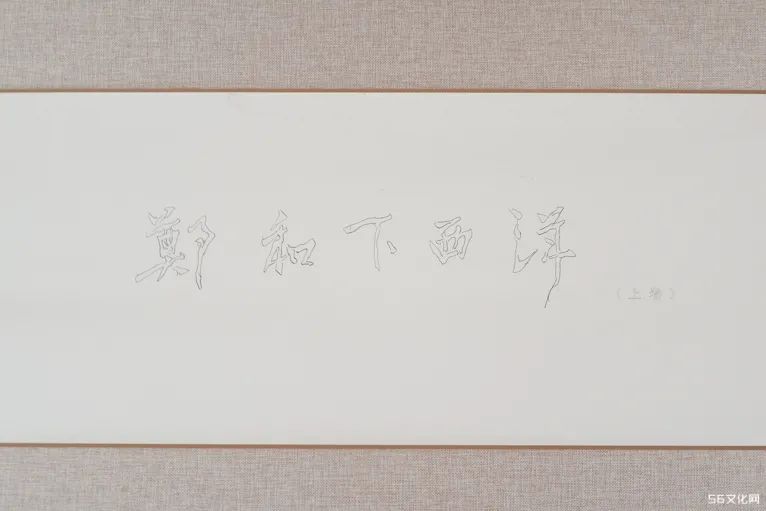 鄭和下西洋
(上卷)
56文化网